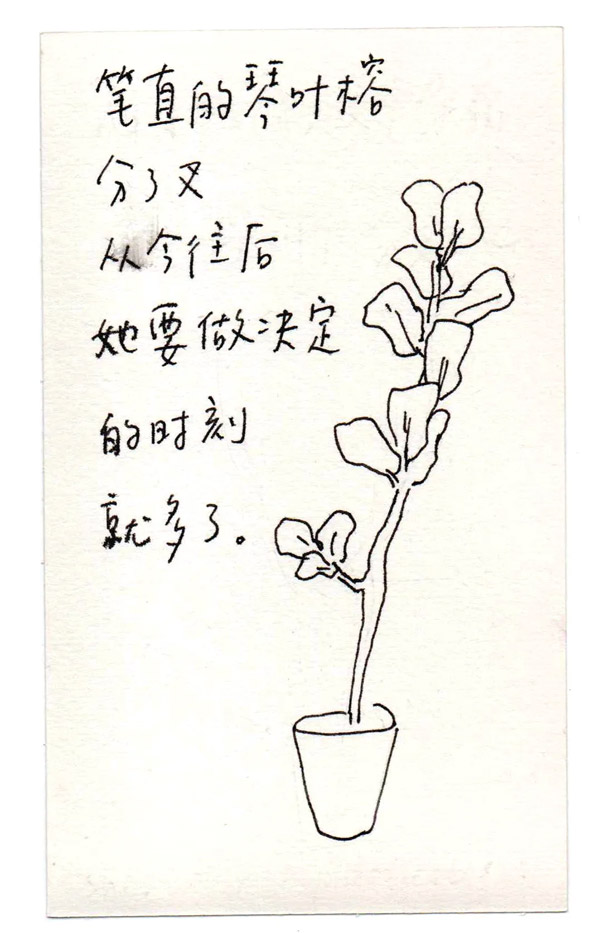 笔直的琴叶榕
分了叉
从今往后
她要做决定
的时刻
就多了。